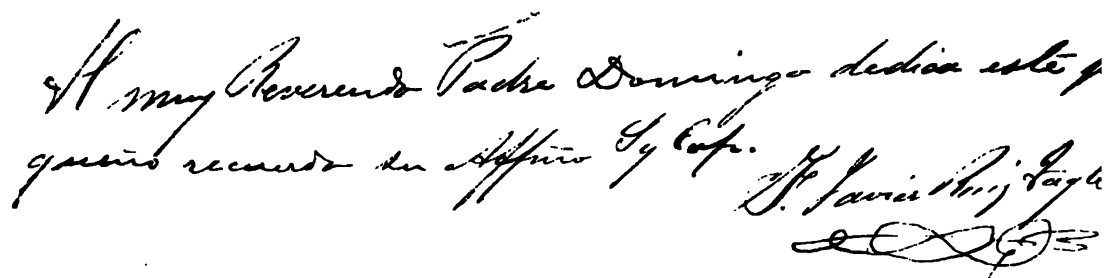 Al muy Reverendo Padre Domingo dedica este p
queño recuerdo su Affmo S y Cap.
F. Javier Ruiz Tagle